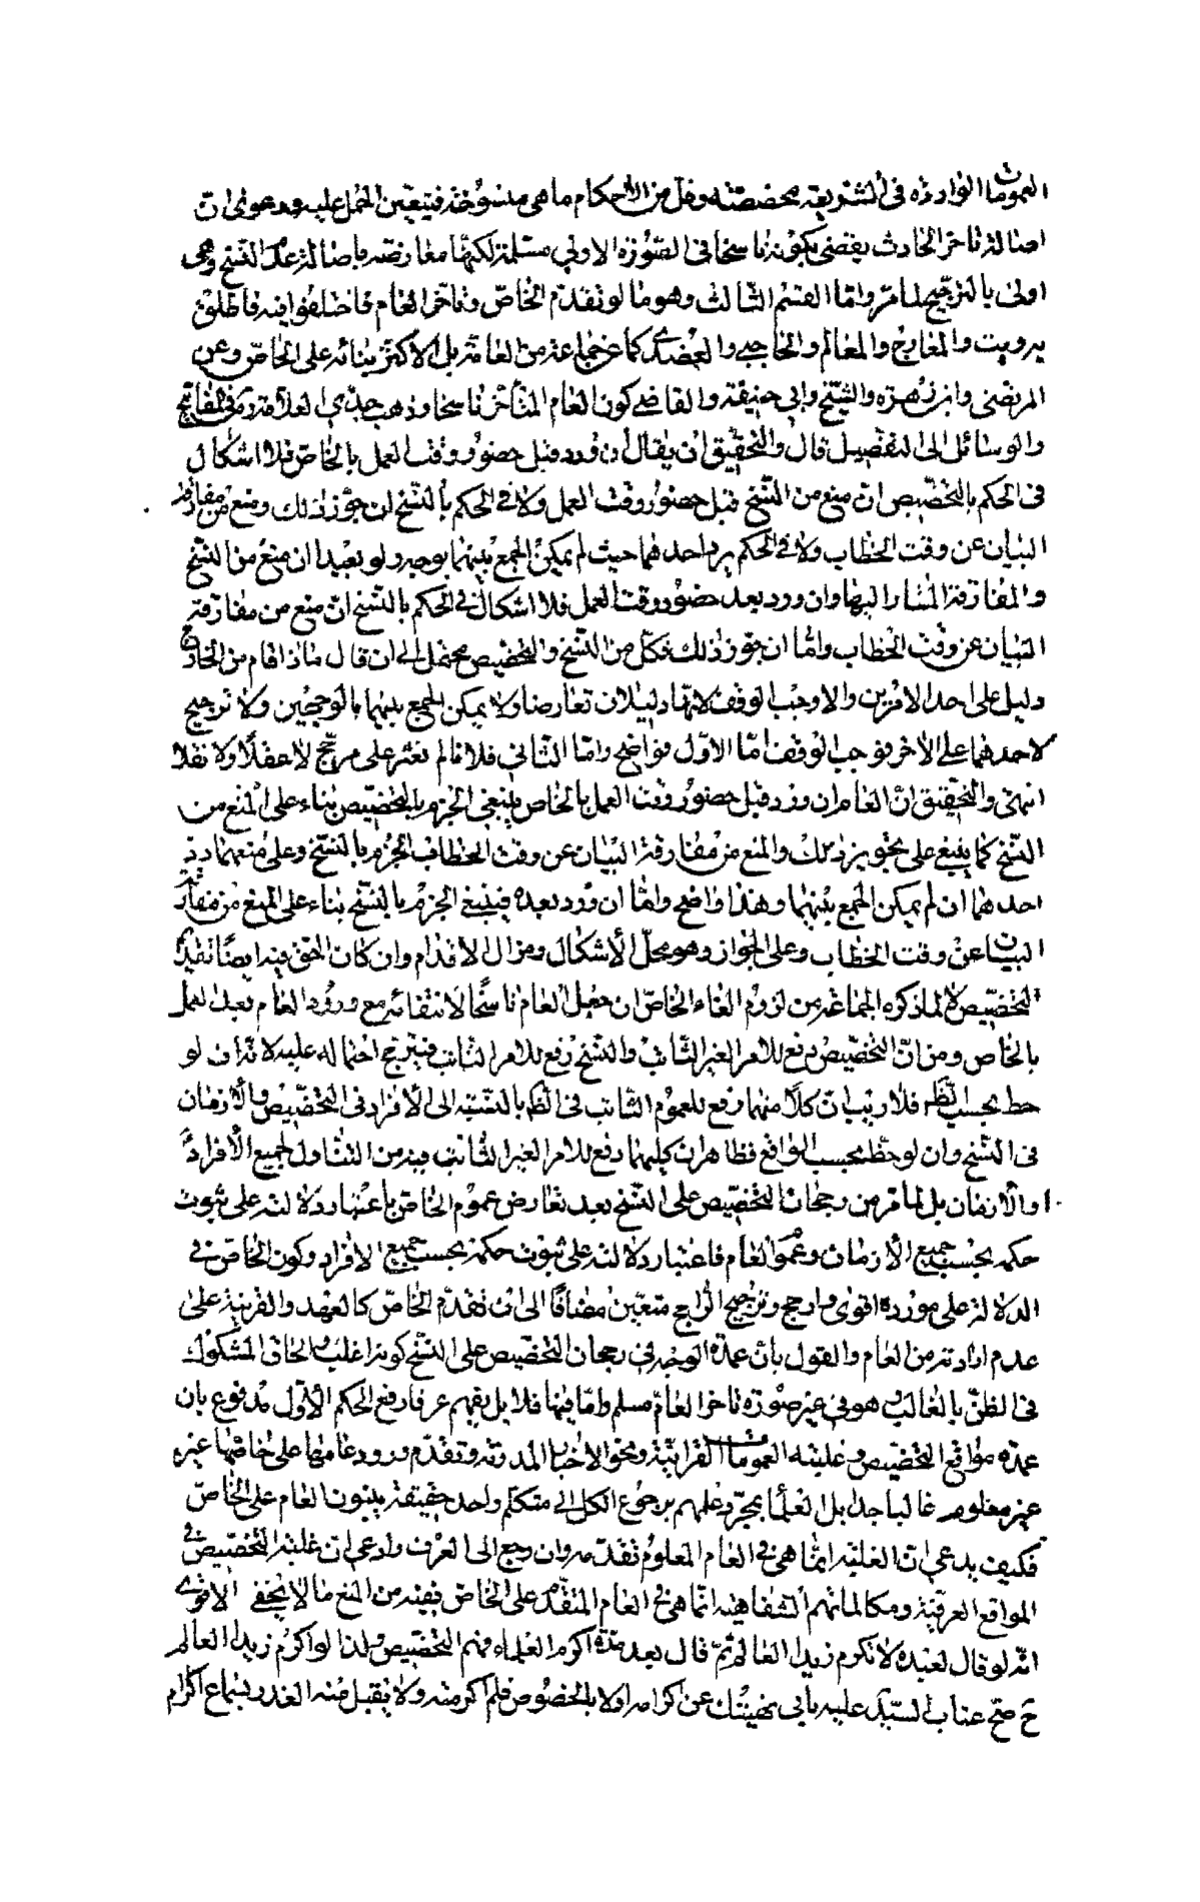 العمومات الواردة فى الشريعة مخصصة وقل من الاحكام ما هى منسوخة فيتعين الحمل عليه ودعوى ان
اصالة تاخر الحادث يقتضى بكونه ناسخا فى الصورة الاولى مسلمة لكنها معارضة باصالة عدم النسخ وهى
اولى بالترجيح لما مر واما القسم الثالث وهو ما لو تقدم الخاص وتاخر العام فاختلفوا فيه فاطلق
يه ويت والمعارج والمعالم والحاجبى والعضدى كما عن جماعة من العامة بل الاكثر بنائه على الخاص وعن
المرتضى وابن زهرة والشيخ وابى حنيفة والقاضى كون العام المتأخر ناسخا وذهب جدى العلامة فى المفاتيح
والوسائل الى التفصيل قال والتحقيق ان يقال ان ورد قبل حضور وقت العمل بالخاص فلا اشكال
فى الحكم بالتخصيص ان منع من النسخ قبل حضور وقت العمل ولا فى الحكم بالنسخ ان جوز ذلك ومنع من مفارقة
البيان عن وقت الخطاب ولا فى الحكم برد احدهما حيث لم يمكن الجمع بينهما بوجه ولو بعيدا ان منع من النسخ
والمفارقة المشار اليها وان ورد بعد حضور وقت العمل فلا اشكال فى الحكم بالنسخ ان منع من مفارقة
البيان عن وقت الخطاب واما ان جوز ذلك فكل من النسخ والتخصيص محتمل الى ان قال ماذا قام من الخارج
دليل على احد الامرين والا وجب الوقف لانها دليلان تعارضا ولا يمكن الجمع بينهما بالوجهين ولا ترجيح
لاحدهما على الاخر فوجب الوقف اما الاول فواضح واما الثانى فلانا لم نعثر على مرجح لا عقلا ولا نقلا
انتهى والتحقيق ان العام ان ورد قبل حضور وقت العمل بالخاص ينبغى الجزم بالتخصيص بناء على المنع من
النسخ كما ينبغى على تجويز ذلك والمنع من مفارقة البيان عن وقت الخطاب الجزم بالنسخ وعلى منعهما رد
احدهما ان لم يمكن الجمع بينهما وهذا واضح واما ان ورد بعده فينبغى الجزم بالنسخ بناء على المنع من مفارقة
البيان عن وقت الخطاب وعلى الجواز وهو محل الاشكال ومزال الاقدام وان كان الحق فيه ايضا تقديم
التخصيص لا لما ذكره الجماعة من لزوم الغاء الخاص ان جعل العام ناسخا لانتفائه مع ورود العام بعد العمل
بالخاص ومن ان التخصيص دفع للامر الغير الثابت والنسخ رفع للامر الثابت فيترجح احتماله عليه لانه ان لو
حظ بحسب الظ فلا ريب ان كلا منهما رفع للعموم الثابت فى الظ بالنسبة الى الافراد فى التخصيص والازمان
فى النسخ وان لوحظ بحسب الواقع فظاهر ان كليهما دفع للامر الغير الثابت فيه من التناول لجميع الافراد
او الازمان بل لما مر من رجحان التخصيص على النسخ بعد تعارض عموم الخاص باعتبار دلالته على ثبوت
حكمه بحسب جميع الازمان وعموم العام فاعتبار دلالته على ثبوت حكمه بحسب جميع الافراد وكون الخاص فى
الدلالة على مورده اقوى وارجح وترجيح الراجح متعين مضافا الى ان تقدم الخاص كالعهد والقرينة على
عدم ارادته من العام والقول بان عمدة الوجه فى رجحان التخصيص على النسخ كونه اغلب والحاق المشكوك
فى الظن بالغالب وهو فى غير صورة تاخر العام مسلم واما فيها فلا بل يفهم عرفا رفع الحكم الاول مدفوع بان
عمدة مواقع التخصيص وغلبته العمومات القرانية ونحو الاخبار المدونة وتقدم ورود عامها على خاصها غيره
غير معلوم غالبا جدا بل العلماء بمجرد علمهم برجوع الكل الى متكلم واحد حقيقة يبنون العام على الخاص
فكيف يدعى ان الغلبة انما هى فى العام المعلوم تقدمه وان رجع الى العرف وادعى ان غلبة التخصيص فى
المواقع العرفية ومكالماتهم الشفاهية انما هى فى العام المتقدم على الخاص ففيه من المنع ما لا يخفى الا ترى
انه لو قال لعبده لا تكرم زيدا العالم ثم قال بعد مدة اكرم العلماء فهم التخصيص ولذا لو اكرم زيدا العالم
ح صح عتاب السيد عليه بانى نهيتك عن اكرامه اولا بالخصوص فلم اكرمته ولا يقبل منه العذر بسماع اكرام